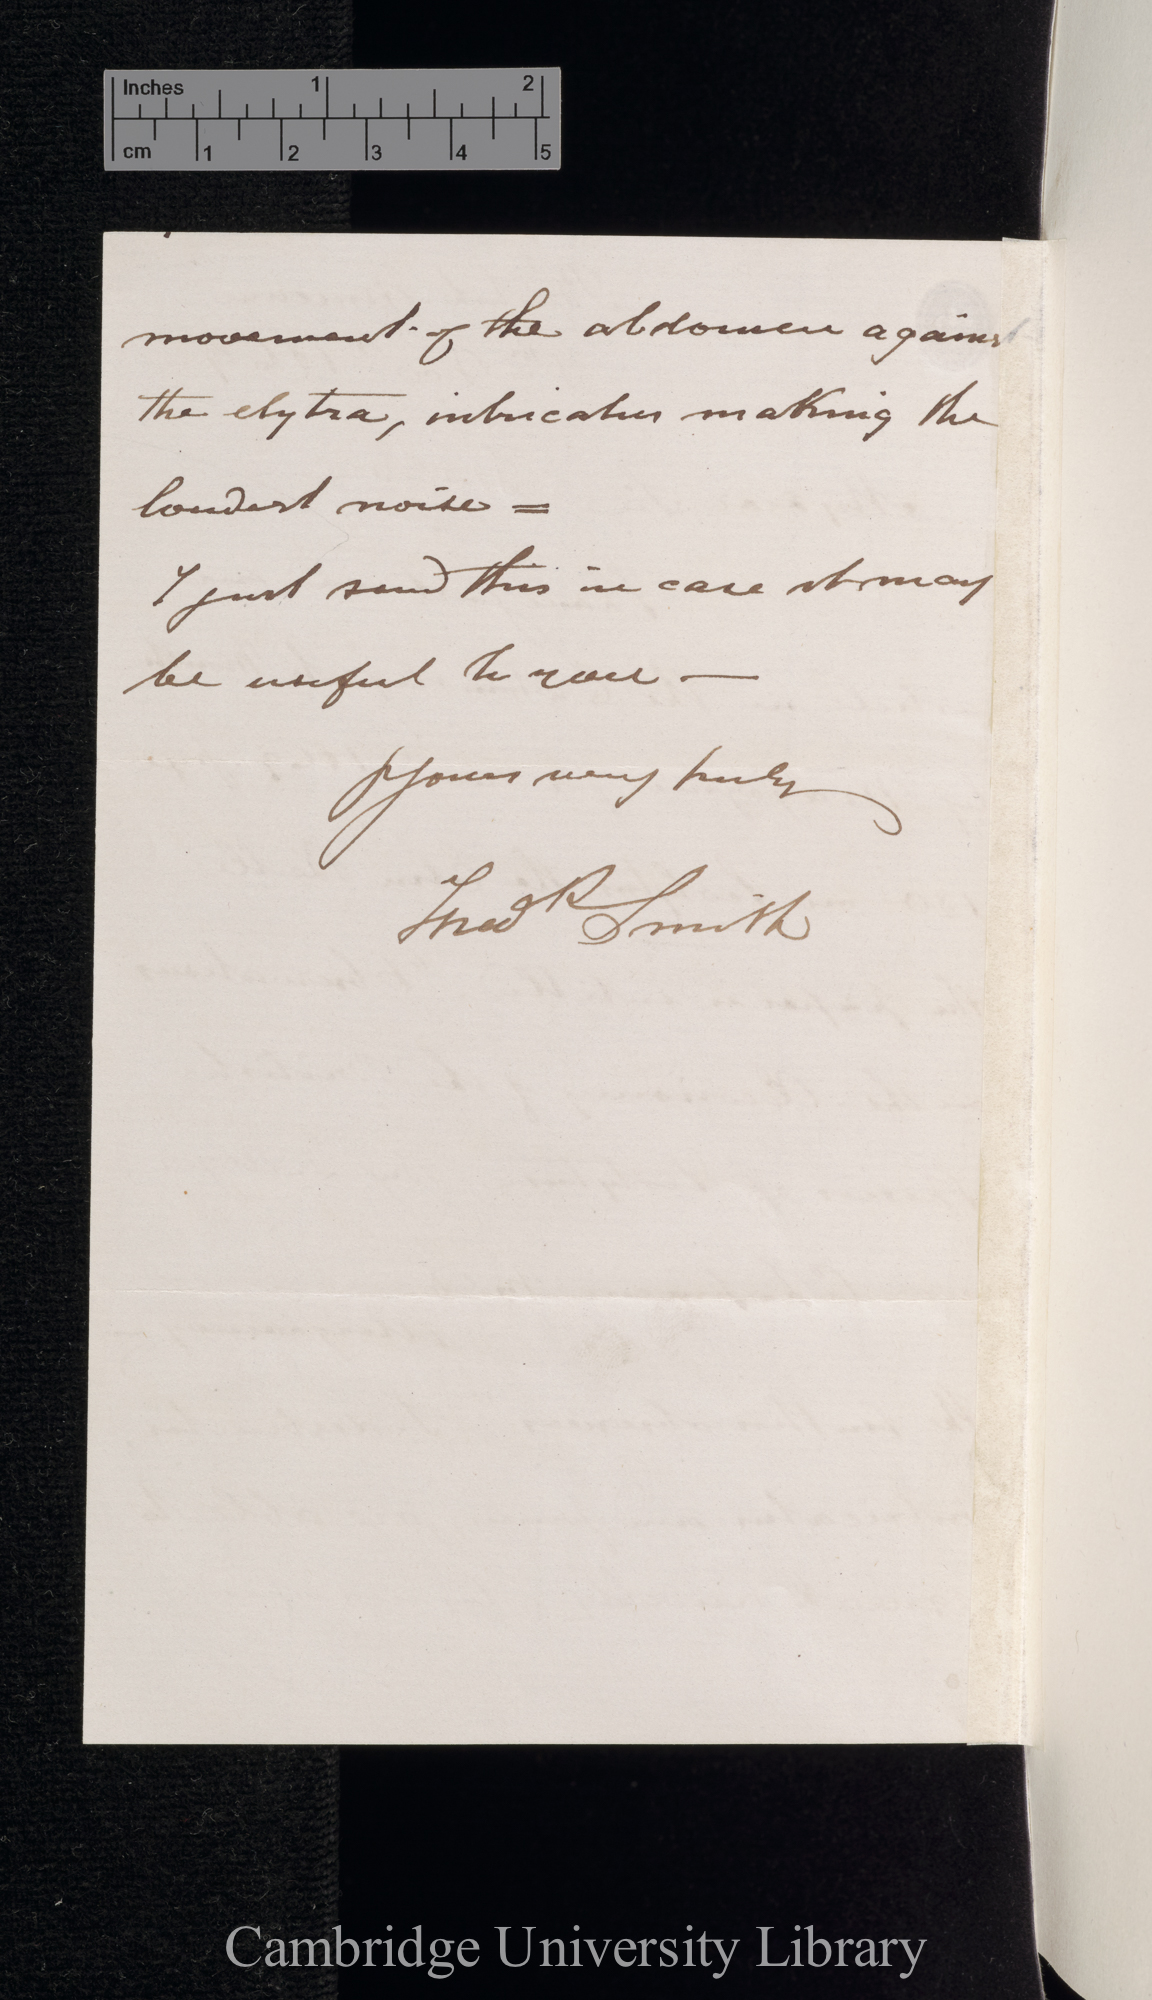 Inches 1 2
cm 1 2 3 4 5
movement of the abdomen against
the elytra, intricatus making the
loudest noise =
I just send this in case it may
be useful to you —
Yours very truly
Fredk Smith
Cambridge University Library